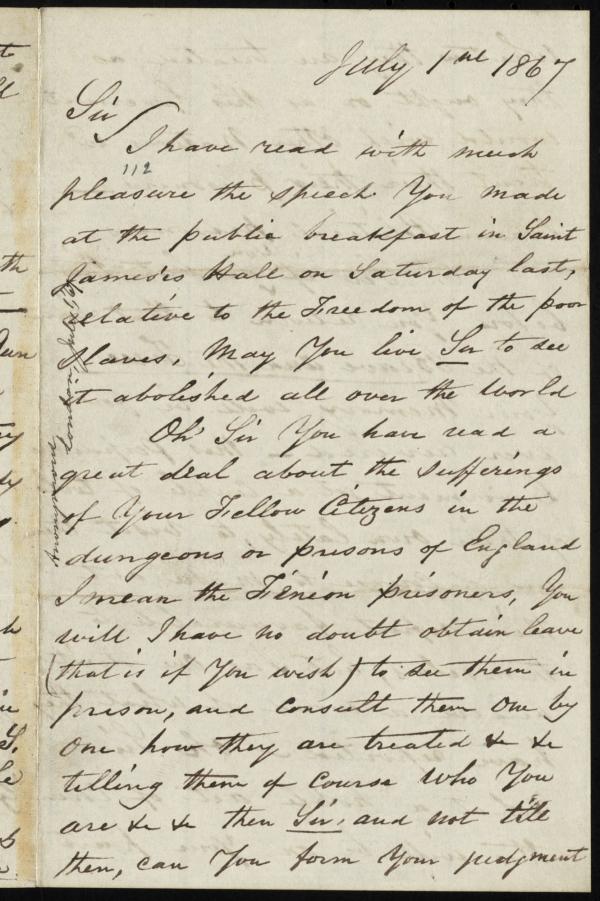 July 1st 1867
Sir
I have read with much
112
pleasure the speech You made
at the public breakfast in Saint
James'es Hall on Saturday last,
relative to the Freedom of the poor
slaves, May You live Sir to see
it abolished all over the World
Oh' Sir You have read a
great deal about the sufferings
of Your Fellow Citizens in the
dungeons or prisons of England
I mean the Fénéon prisoners, You
will I have no doubt obtain leave
(that is if You wish) to see them in
prison, and consult them one by
one how they are treated &c &c
telling them of course who You
are &c &c then Sir, and not till
then, can You form Your judgment
Anonymous
London, July 1/67